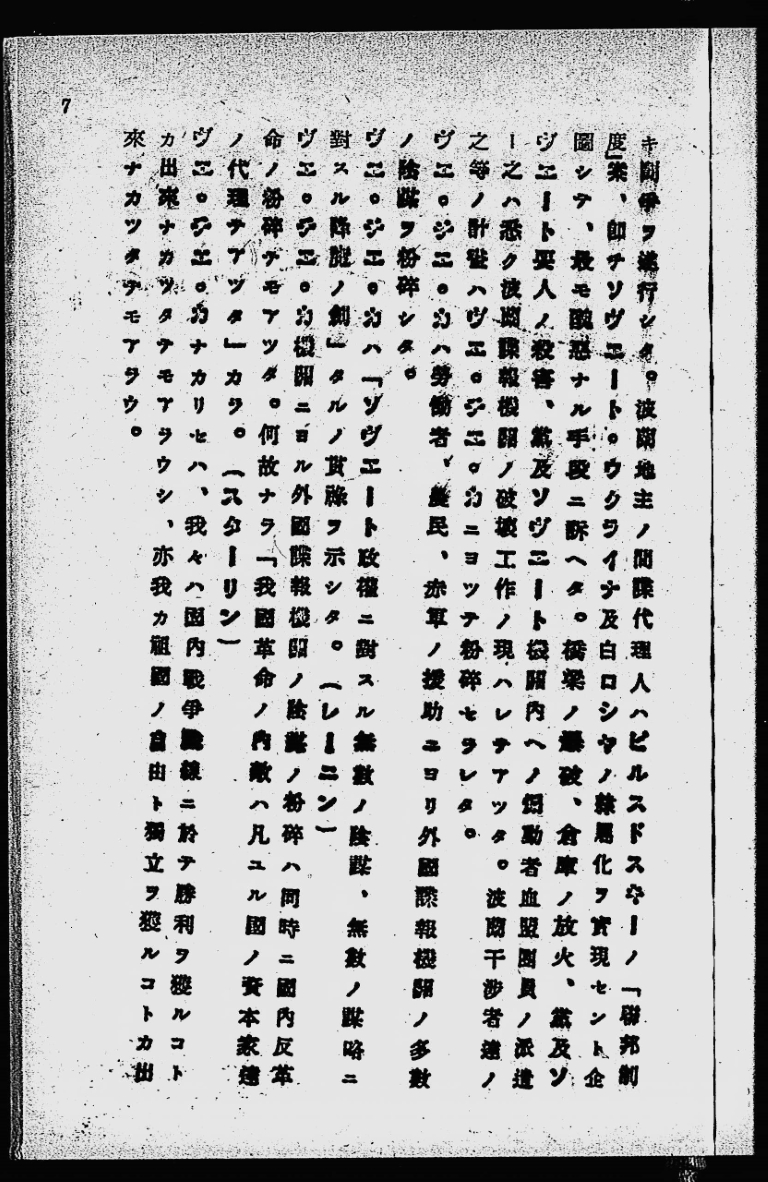 7
キ鬪爭ヲ遂行シタ。波蘭地主ノ間諜代理人ハピルスドスキーノ「聯邦制
度」案、卽チソヴエート。ウクライナ及白ロシヤノ隸屬化ヲ實現セント企
圖シテ、最モ醜惡ナル手段ニ訴ヘタ。橋梁ノ爆破、倉庫ノ放火、黨及ソ
ヴエート要人ノ殺害、黨及ソヴエート機關內ヘノ煽動者血盟團員ノ派遣
ー之ハ悉ク波蘭諜報機關ノ破壞工作ノ現ハレテアツタ。波蘭干涉者達ノ
之等ノ計畫ハヴエ。ジエ。カニヨツテ粉碎セラレタ。
ヴエ。ジエ。カハ勞働者、農民、赤軍ノ援助ニヨリ外國諜報機關ノ多數
ノ陰謀ヲ粉碎シタ。
ヴエ。ジエ。カハ「ソヴエート政權ニ對スル無數ノ陰謀、無數ノ謀略ニ
對スル降魔ノ劍」タルノ貫祿ヲ示シタ。(レーニン)
ヴエ。ジエ。カ機關ニヨル外國諜報機關ノ陰謀ノ粉碎ハ同時ニ國內反革
命ノ粉碎テモアツタ。何故ナラ「我國革命ノ內敵ハ凡ユル國ノ資本家達
ノ代理テアツタ」カラ。(スターリン)
ヴエ。ジエ。カナカリセハ、我々ハ國內戰爭戰線ニ於テ勝利ヲ獲ルコト
カ出來ナカツタテモアラウシ、亦我カ祖國ノ自由ト獨立ヲ獲ルコトカ出
來ナカツタテモアラウ。